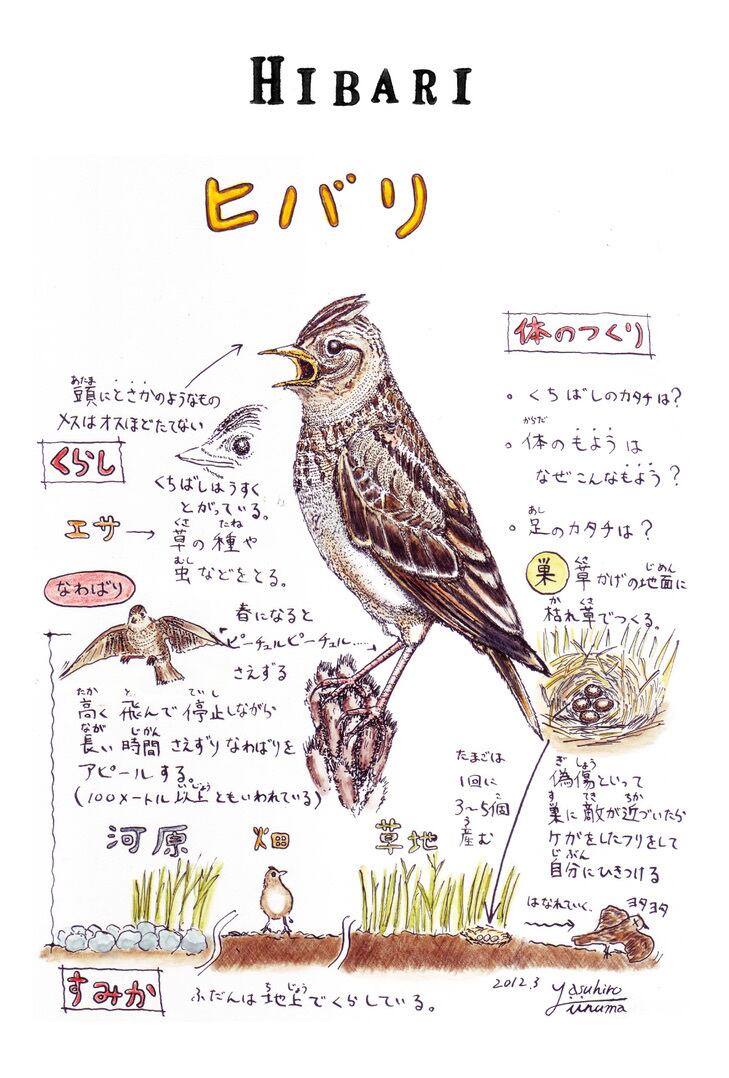 HIBARI
ヒバリ
体のつくり
あたま
頭にとさかのようなもの
メスはオスほどたてない
。くちばしのカタチは?
からだ
。体のもようは
なぜこんなもよう?
あし
。足のカタチは?
くらし
くちばしはうすく
とがっている。
エサ→
くさ たね
草の種や
むし
虫などをとる。
巣
くさ じめん
草かげの地面に
か くさ
枯れ草でつくる。
なわばり
春になると
ピーチュルピーチュル…
さえずる
たか と ていし
高く飛んで停止しながら
なが じかん
長い時間さえずりなわばりを
アピールする。
いじょう
(100メートル以上ともいわれている)
たまごは
1回に
こ
3〜5個
う
産む
ぎしょう
偽傷といって
す てき ちか
巣に敵が近づいたら
ケガをしたフリをして
じぶん
自分にひきつける
河原
畑
草地
はなれていく、
ヨタヨタ
すみか
ちじょう
ふだんは地上でくらしている。
2012.3
Yasuhiro
Iinuma